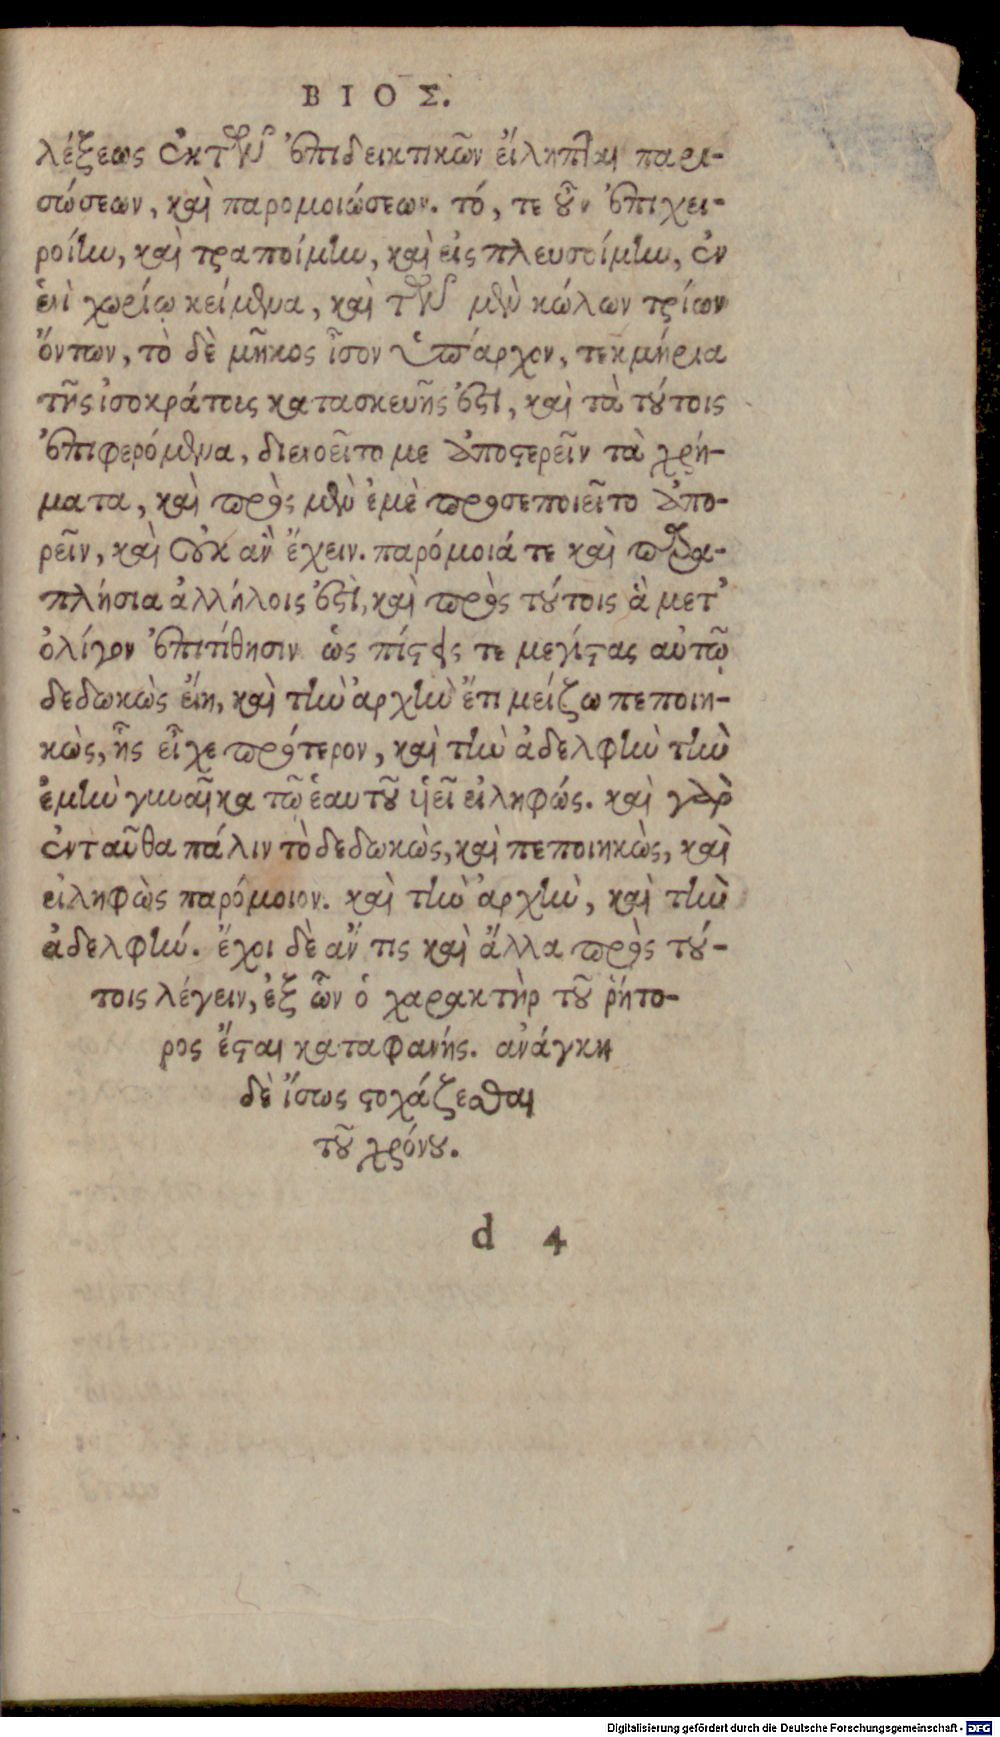 ΒΙΟΣ.
λέξεως ἐκ τῶν ἐπιδεικτικῶν εἴληπται παρι-
σώσεων, καὶ παρομοιώσεων. τό, τε οὖν ἐπιχει-
ροίην, καὶ τραποίμην, καὶ εἰς πλευσοίμην, ἐν
ἑνὶ χωρίῳ κείμενα, καὶ τῶν μὲν κώλων τρίων
ὄντων, τὸ δὲ μῆκος ἶσον ὑπάρχον, τεκμήρια
τῆς ἰσοκράτους κατασκευῆς ἐστὶ, καὶ τὰ τούτοις
ἐπιφερόμενα, διενοεῖτο με ἀποστερεῖν τὰ χρή-
ματα, καὶ πρὸς μὲν ἐμὲ προσεποιεῖτο ἀπο-
ρεῖν, καὶ οὐκ ἂν ἔχειν. παρόμοιά τε καὶ παρα-
πλήσια ἀλλήλοις ἐστὶ, καὶ πρὸς τούτοις ἃ μετ'
ὀλίγον ἐπιτίθησιν ὡς πίστεις τε μεγίστας αὐτῷ
δεδωκὼς εἴη, καὶ τὴν ἀρχὴν ἔτι μείζω πεποιη-
κὼς, ἧς εἶχε πρότερον, καὶ τὴν ἀδελφὴν τὴν
ἐμὴν γυναῖκα τῷ ἑαυτοῦ ὑεῖ εἰληφώς. καὶ γὰρ
ἐνταῦθα πάλιν τὸ δεδωκὼς, καὶ πεποιηκὼς, καὶ
εἰληφὼς παρόμοιον. καὶ τὴν ἀρχὴν, καὶ τὴν
ἀδελφήν. ἔχοι δὲ ἄν τις καὶ ἄλλα πρὸς τού-
τοις λέγειν, ἐξ ὧν ὁ χαρακτὴρ τοῦ ῥήτο-
ρος ἔσται καταφανής. ἀνάγκη
δὲ ἴσως στοχάζεσθαι
τοῦ χρόνου.
d 4
Digitalisierung gefördert durch die Deutsche Forschungsgemeinschaft - DFG